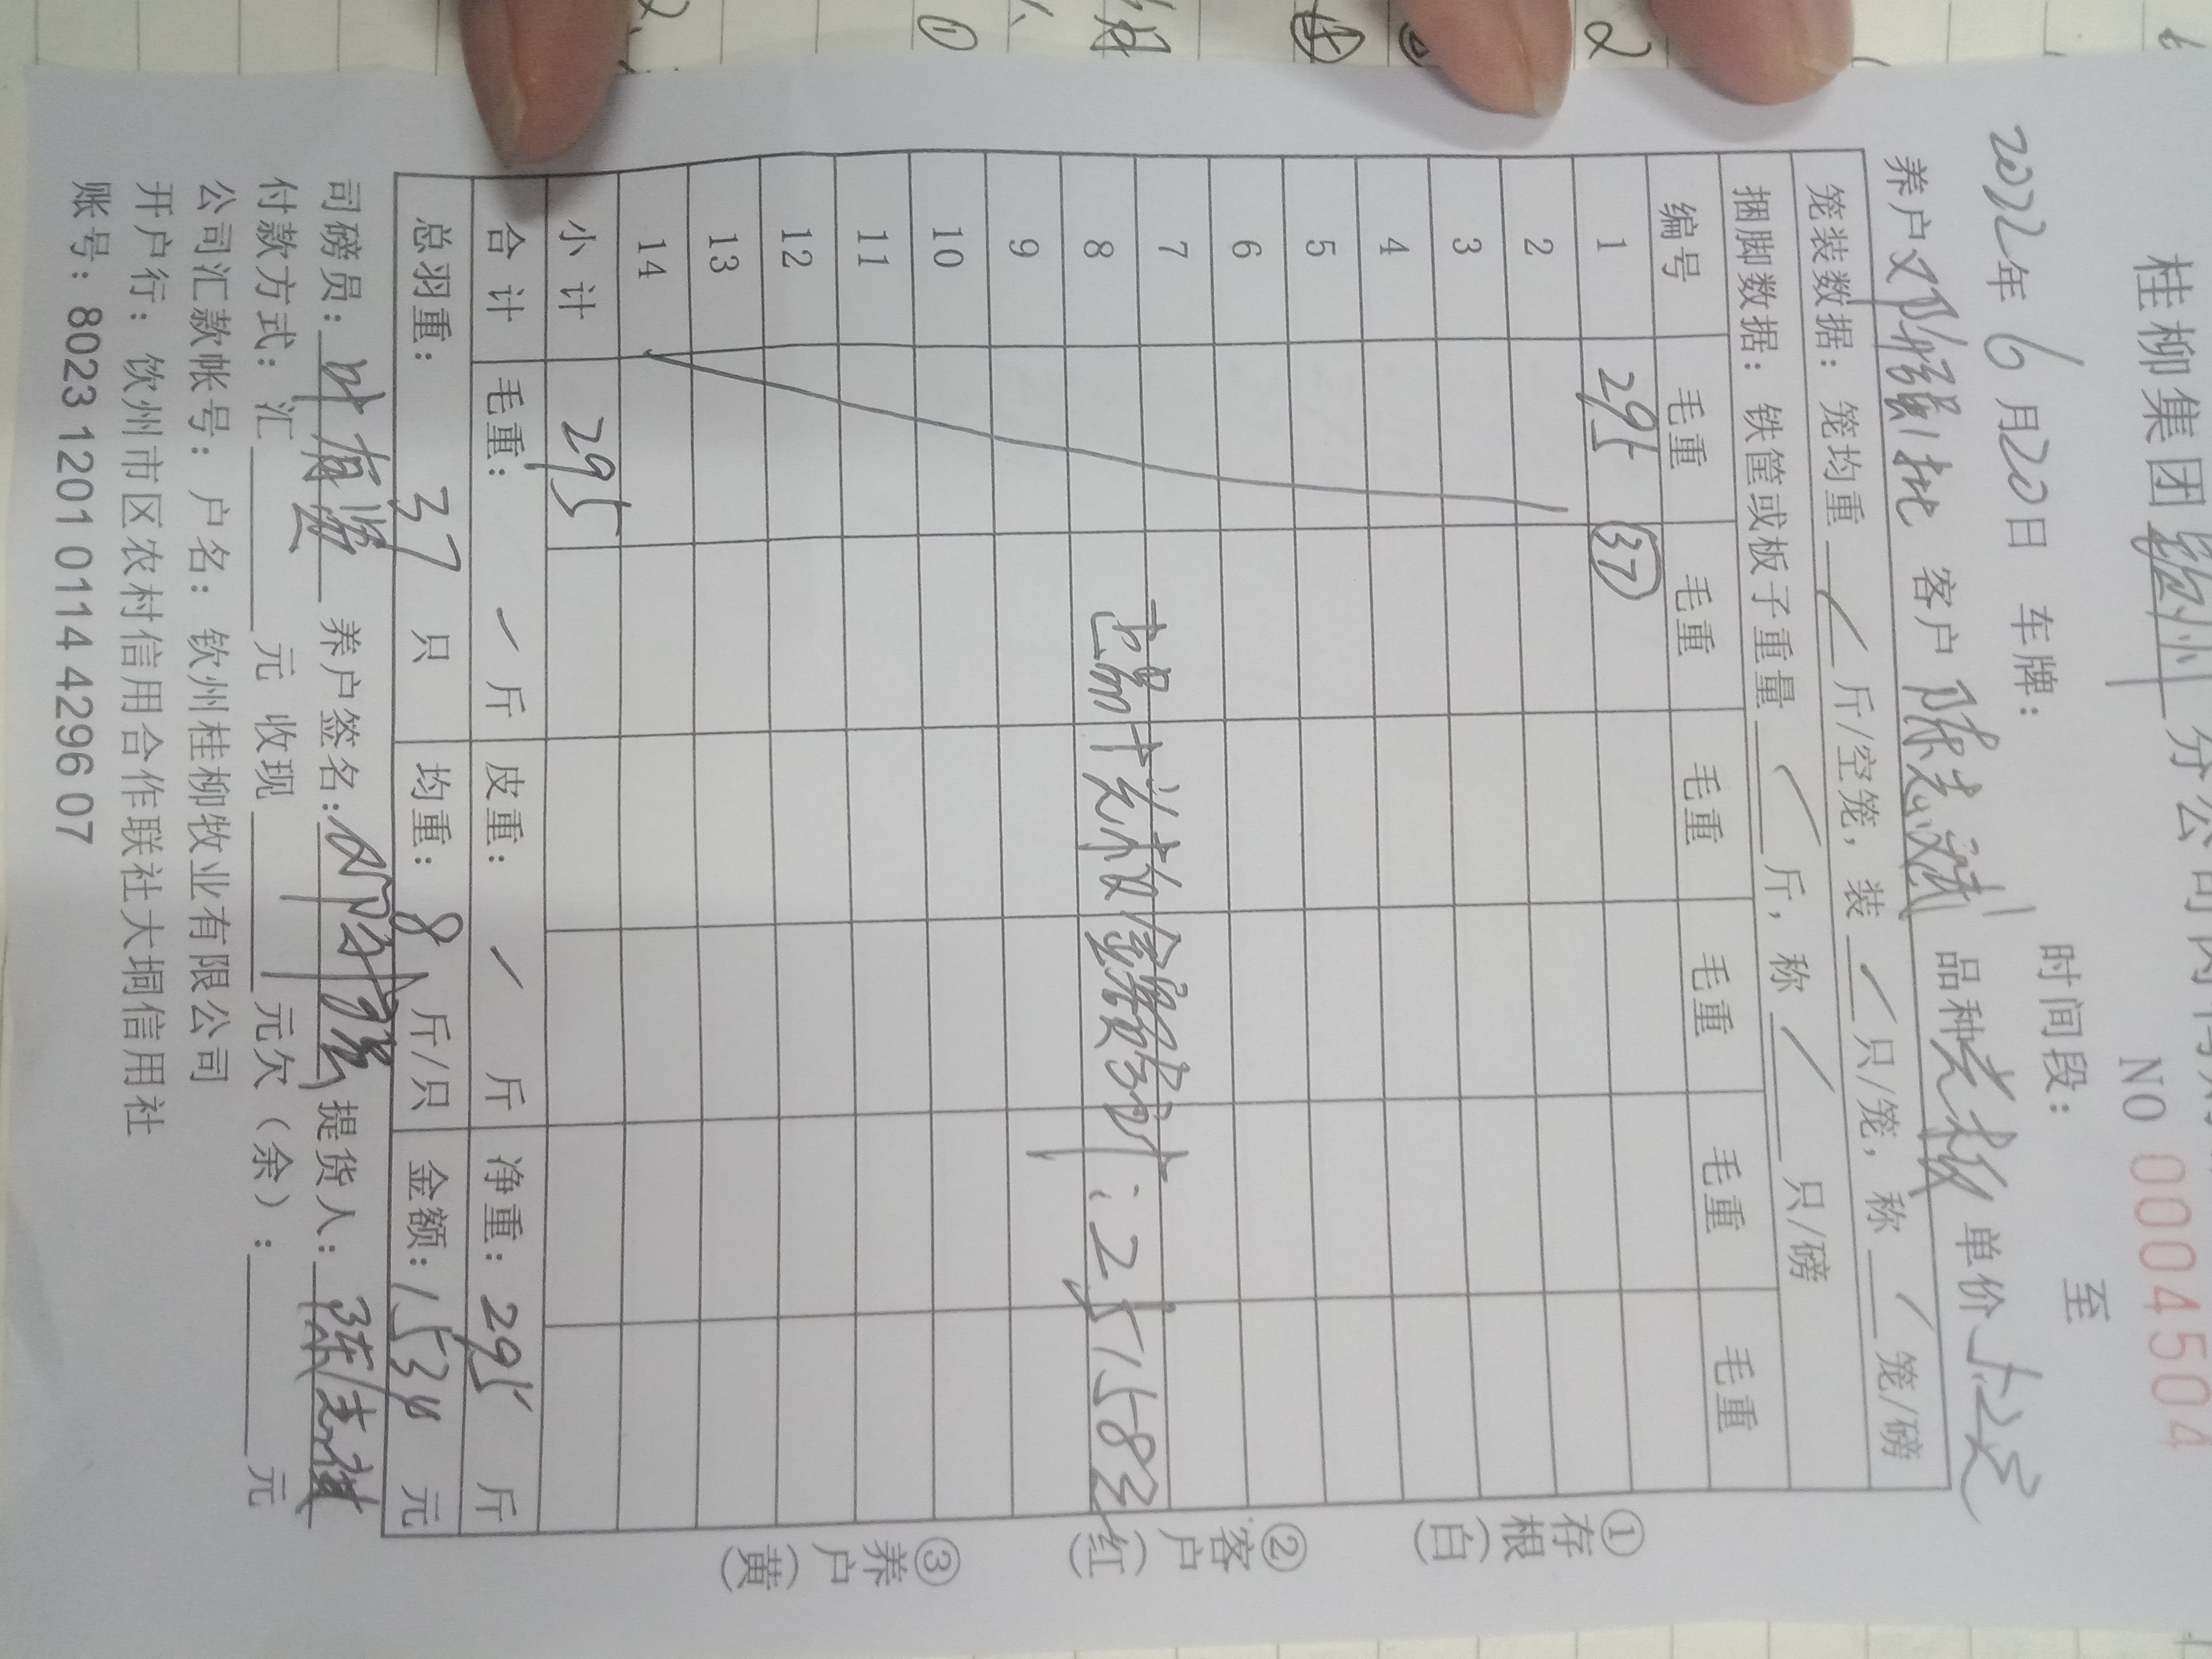 桂柳集团钦州分公司肉
NO 0004504
2022年6月20日 车牌: 时间段: 至
养户 邓 强1批 客户 陈志斌 品种 单价
笼装数据: 笼均重 / 斤/空笼, 装 / 只/笼, 称 / 笼/磅
捆脚数据: 铁筐或板子重量 / 斤, 称 / 只/磅
编号 毛重 毛重 毛重 毛重 毛重 毛重
1 295 37
2
3
4
5
6
7
8
9
10
11
12
13
14
: 251583
小计 295
合计 毛重: / 斤 皮重: / 斤 净重: 295 斤
总羽重: 37 只 均重: 8 斤/只 金额: 1534 元
司磅员: 叶 养户签名: 邓 强 提货人: 陈志斌
付款方式: 汇 元 收现 元欠(余): 元
公司汇款帐号: 户名: 钦州桂柳牧业有限公司
开户行: 钦州市区农村信用合作联社大垌信用社
账号: 8023 1201 0114 4296 07
①存根(白)
②客户(红)
③养户(黄)